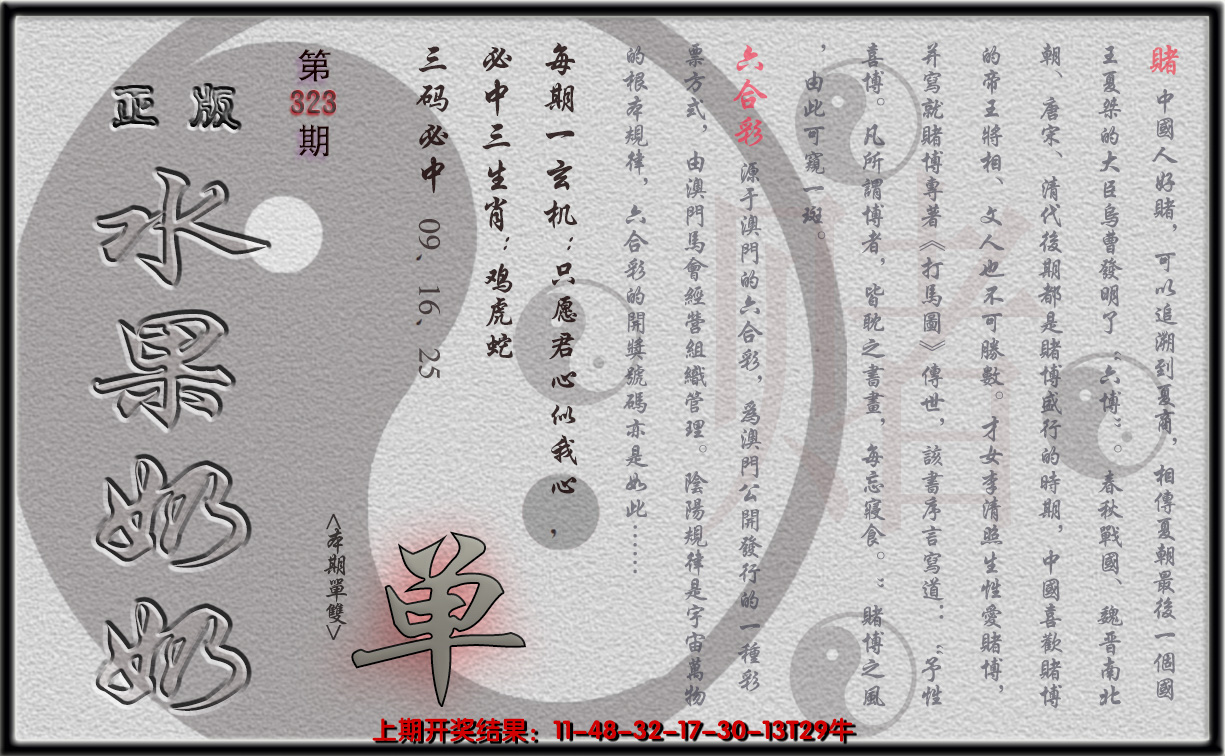 賭 中國人好賭，可以追溯到夏商，相傳夏朝最後一個國
王夏桀的大臣烏曹發明了“六博”。春秋戰國、魏晋南北
朝、唐宋、清代後期都是賭博盛行的時期，中國喜歡賭博
的帝王將相、文人也不可勝數。才女李清照生性愛賭博，
并寫就賭博專著《打馬圖》傳世，該書序言寫道：“予性
喜博。凡所謂博者，皆耽之書畫，每忘寢食。”賭博之風
，由此可窺一斑。
六合彩 源于澳門的六合彩，爲澳門公開發行的一種彩
票方式，由澳門馬會經營組織管理。陰陽規律是宇宙萬物
的根本規律，六合彩的開獎號碼亦是如此……
每期一玄机：只愿君心似我心，
必中三生肖：鸡虎蛇
三码必中 09、16、25
第323期
<本期單雙>
单
正版
水果奶奶
賭
上期开奖结果：11-48-32-17-30-13T29牛